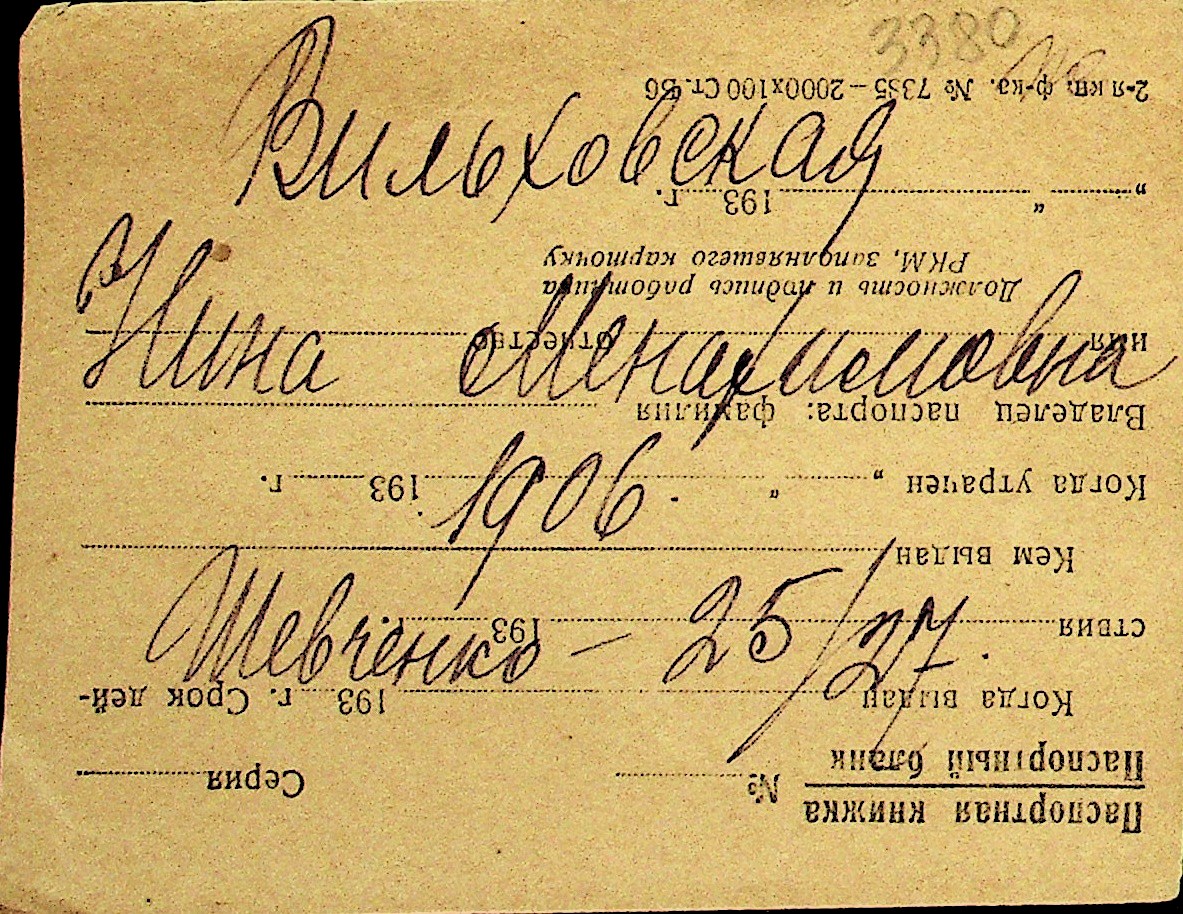 3380
Вильховская
Нина Менахимовна
1906.
Шевченко – 25/27.
Паспортная книжка
Паспортный бланк
№ Серия
Когда выдан 193 г. Срок дей-
ствия 193 г.
Кем выдан
Когда утрачен „ “ 193 г.
Владелец паспорта: фамилия
имя отчество
Должность и подпись работника
РКМ, заполнявшего карточку
„ “ 193 г.
2-я кп. ф-ка. № 7335 – 2000х100 Ст. Б6